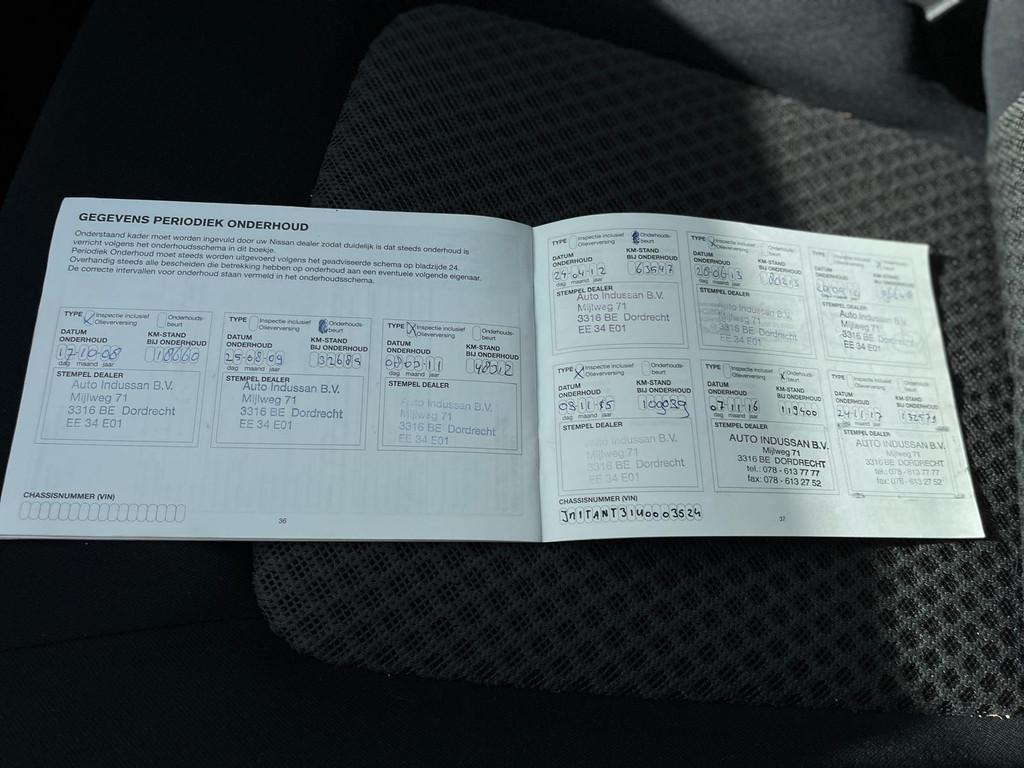 GEGEVENS PERIODIEK ONDERHOUD
Onderstaand kader moet worden ingevuld door uw Nissan dealer zodat duidelijk is dat steeds onderhoud is
verricht volgens het onderhoudsschema in dit boekje.
Periodiek Onderhoud moet steeds worden uitgevoerd volgens het geadviseerde schema op bladzijde 24.
Overhandig steeds alle bescheiden die betrekking hebben op onderhoud aan een eventuele volgende eigenaar.
De correcte intervallen voor onderhoud staan vermeld in het onderhoudsschema.
TYPE Inspectie inclusief Olieverversing Onderhouds-beurt
DATUM ONDERHOUD KM-STAND BIJ ONDERHOUD
17-10-08 18660
dag maand jaar
STEMPEL DEALER
Auto Indussan B.V.
Mijlweg 71
3316 BE Dordrecht
EE 34 E01
TYPE Inspectie inclusief Olieverversing Onderhouds-beurt
DATUM ONDERHOUD KM-STAND BIJ ONDERHOUD
25-08-09 32685
dag maand jaar
STEMPEL DEALER
Auto Indussan B.V.
Mijlweg 71
3316 BE Dordrecht
EE 34 E01
TYPE Inspectie inclusief Olieverversing Onderhouds-beurt
DATUM ONDERHOUD KM-STAND BIJ ONDERHOUD
dag maand jaar
STEMPEL DEALER
Auto Indussan B.V.
Mijlweg 71
3316 BE Dordrecht
EE 34 E01
CHASSISNUMMER (VIN)
36
TYPE Inspectie inclusief Olieverversing Onderhouds-beurt
DATUM ONDERHOUD KM-STAND BIJ ONDERHOUD
24-04-12 63547
dag maand jaar
STEMPEL DEALER
Auto Indussan B.V.
Mijlweg 71
3316 BE Dordrecht
EE 34 E01
TYPE Inspectie inclusief Olieverversing Onderhouds-beurt
DATUM ONDERHOUD KM-STAND BIJ ONDERHOUD
dag maand jaar
STEMPEL DEALER
Auto Indussan B.V.
Mijlweg 71
3316 BE Dordrecht
EE 34 E01
TYPE
DATUM ONDERHOUD KM-STAND BIJ ONDERHOUD
STEMPEL DEALER
Auto Indussan B.V.
Mijlweg 71
3316 BE Dordrecht
EE 34 E01
TYPE Inspectie inclusief Olieverversing Onderhouds-beurt
DATUM ONDERHOUD KM-STAND BIJ ONDERHOUD
dag maand jaar
STEMPEL DEALER
Auto Indussan B.V.
Mijlweg 71
3316 BE Dordrecht
EE 34 E01
TYPE Inspectie inclusief Olieverversing Onderhouds-beurt
DATUM ONDERHOUD KM-STAND BIJ ONDERHOUD
07-11-16 119400
dag maand jaar
STEMPEL DEALER
AUTO INDUSSAN B.V.
Mijlweg 71
3316 BE DORDRECHT
tel.: 078 - 613 77 77
fax: 078 - 613 27 52
TYPE Inspectie inclusief Olieverversing Onderhouds-beurt
DATUM ONDERHOUD KM-STAND BIJ ONDERHOUD
24-11-17
dag maand jaar
STEMPEL DEALER
AUTO INDUSSAN B.V.
Mijlweg 71
3316 BE DORDRECHT
tel.: 078 - 613 77 77
fax: 078 - 613 27 52
CHASSISNUMMER (VIN)
37